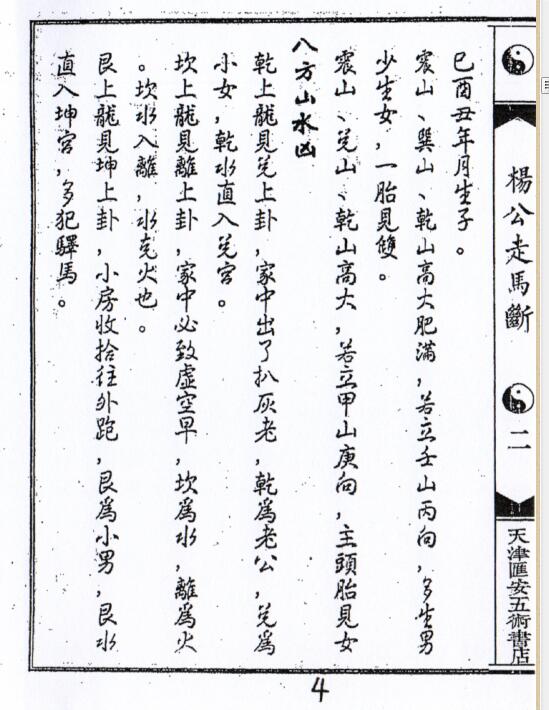 楊公走馬斷
二
天津匯安五術書店
巳酉丑年月生子。
震山、巽山、乾山高大肥滿，若立壬山丙向，多生男
少生女，一胎見雙。
震山、兌山、乾山高大，若立甲山庚向，主頭胎見女
八方山水凶
乾上龍見兌上卦，家中出了扒灰老，乾為老公，兌為
小女，乾水直入兌宮。
坎上龍見離上卦，家中必致虛空早，坎為水，離為火
。坎水入離，水克火也。
艮上龍見坤上卦，小房收拾往外跑，艮為小男，艮水
直入坤宮，多犯驛馬。
4